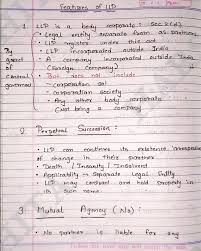 Features of LLP
1. LLP is a body corporate : sec 2(d)
• Legal entity separate from as partners
• LLP registers under this act.
By • LLP incorporated outside India
grant • A company incorporated outside India
of (Foreign Company)
Central • But does not include
government - corporation sol
- corporation society
- Any other body corporate
(not being a company)
2. Perpetual Succession :
• LLP can continue its existence irrespective
of change in their partner
• Death / Insanity / Insolvent
• Applicability → Separate Legal Entity
• LLP may contract and hold property in
its own name
3. Mutual Agency (No) :
• No partner is liable for any